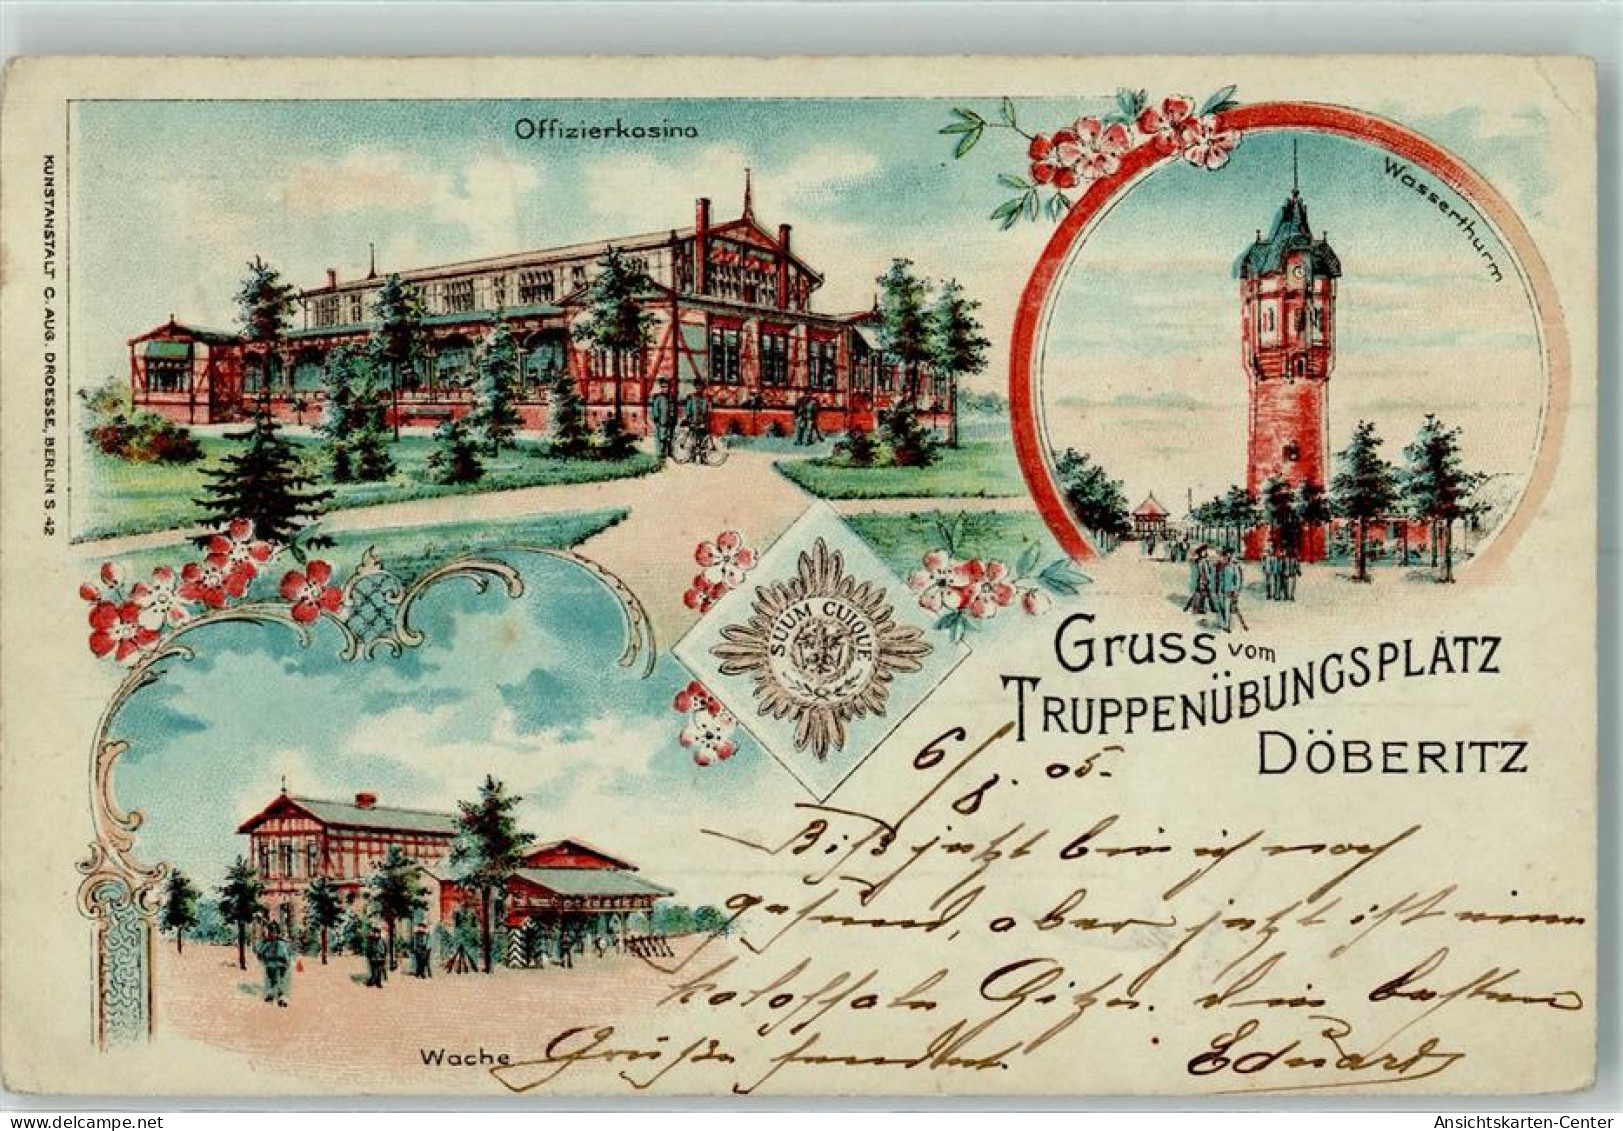 Offizierkasino
Wasserthurm
KUNSTANSTALT C. AUG. DROESSE, BERLIN S. 42
SUUM CUIQUE
Gruss vom
TRUPPENÜBUNGSPLATZ
DÖBERITZ
6/8. 05.
Biß jetzt bin ich noch
gesund, aber jetzt ist eine
kolossale Hitze. Die besten
Grüße sendet Eduard
Wache
Ansichtskarten-Center